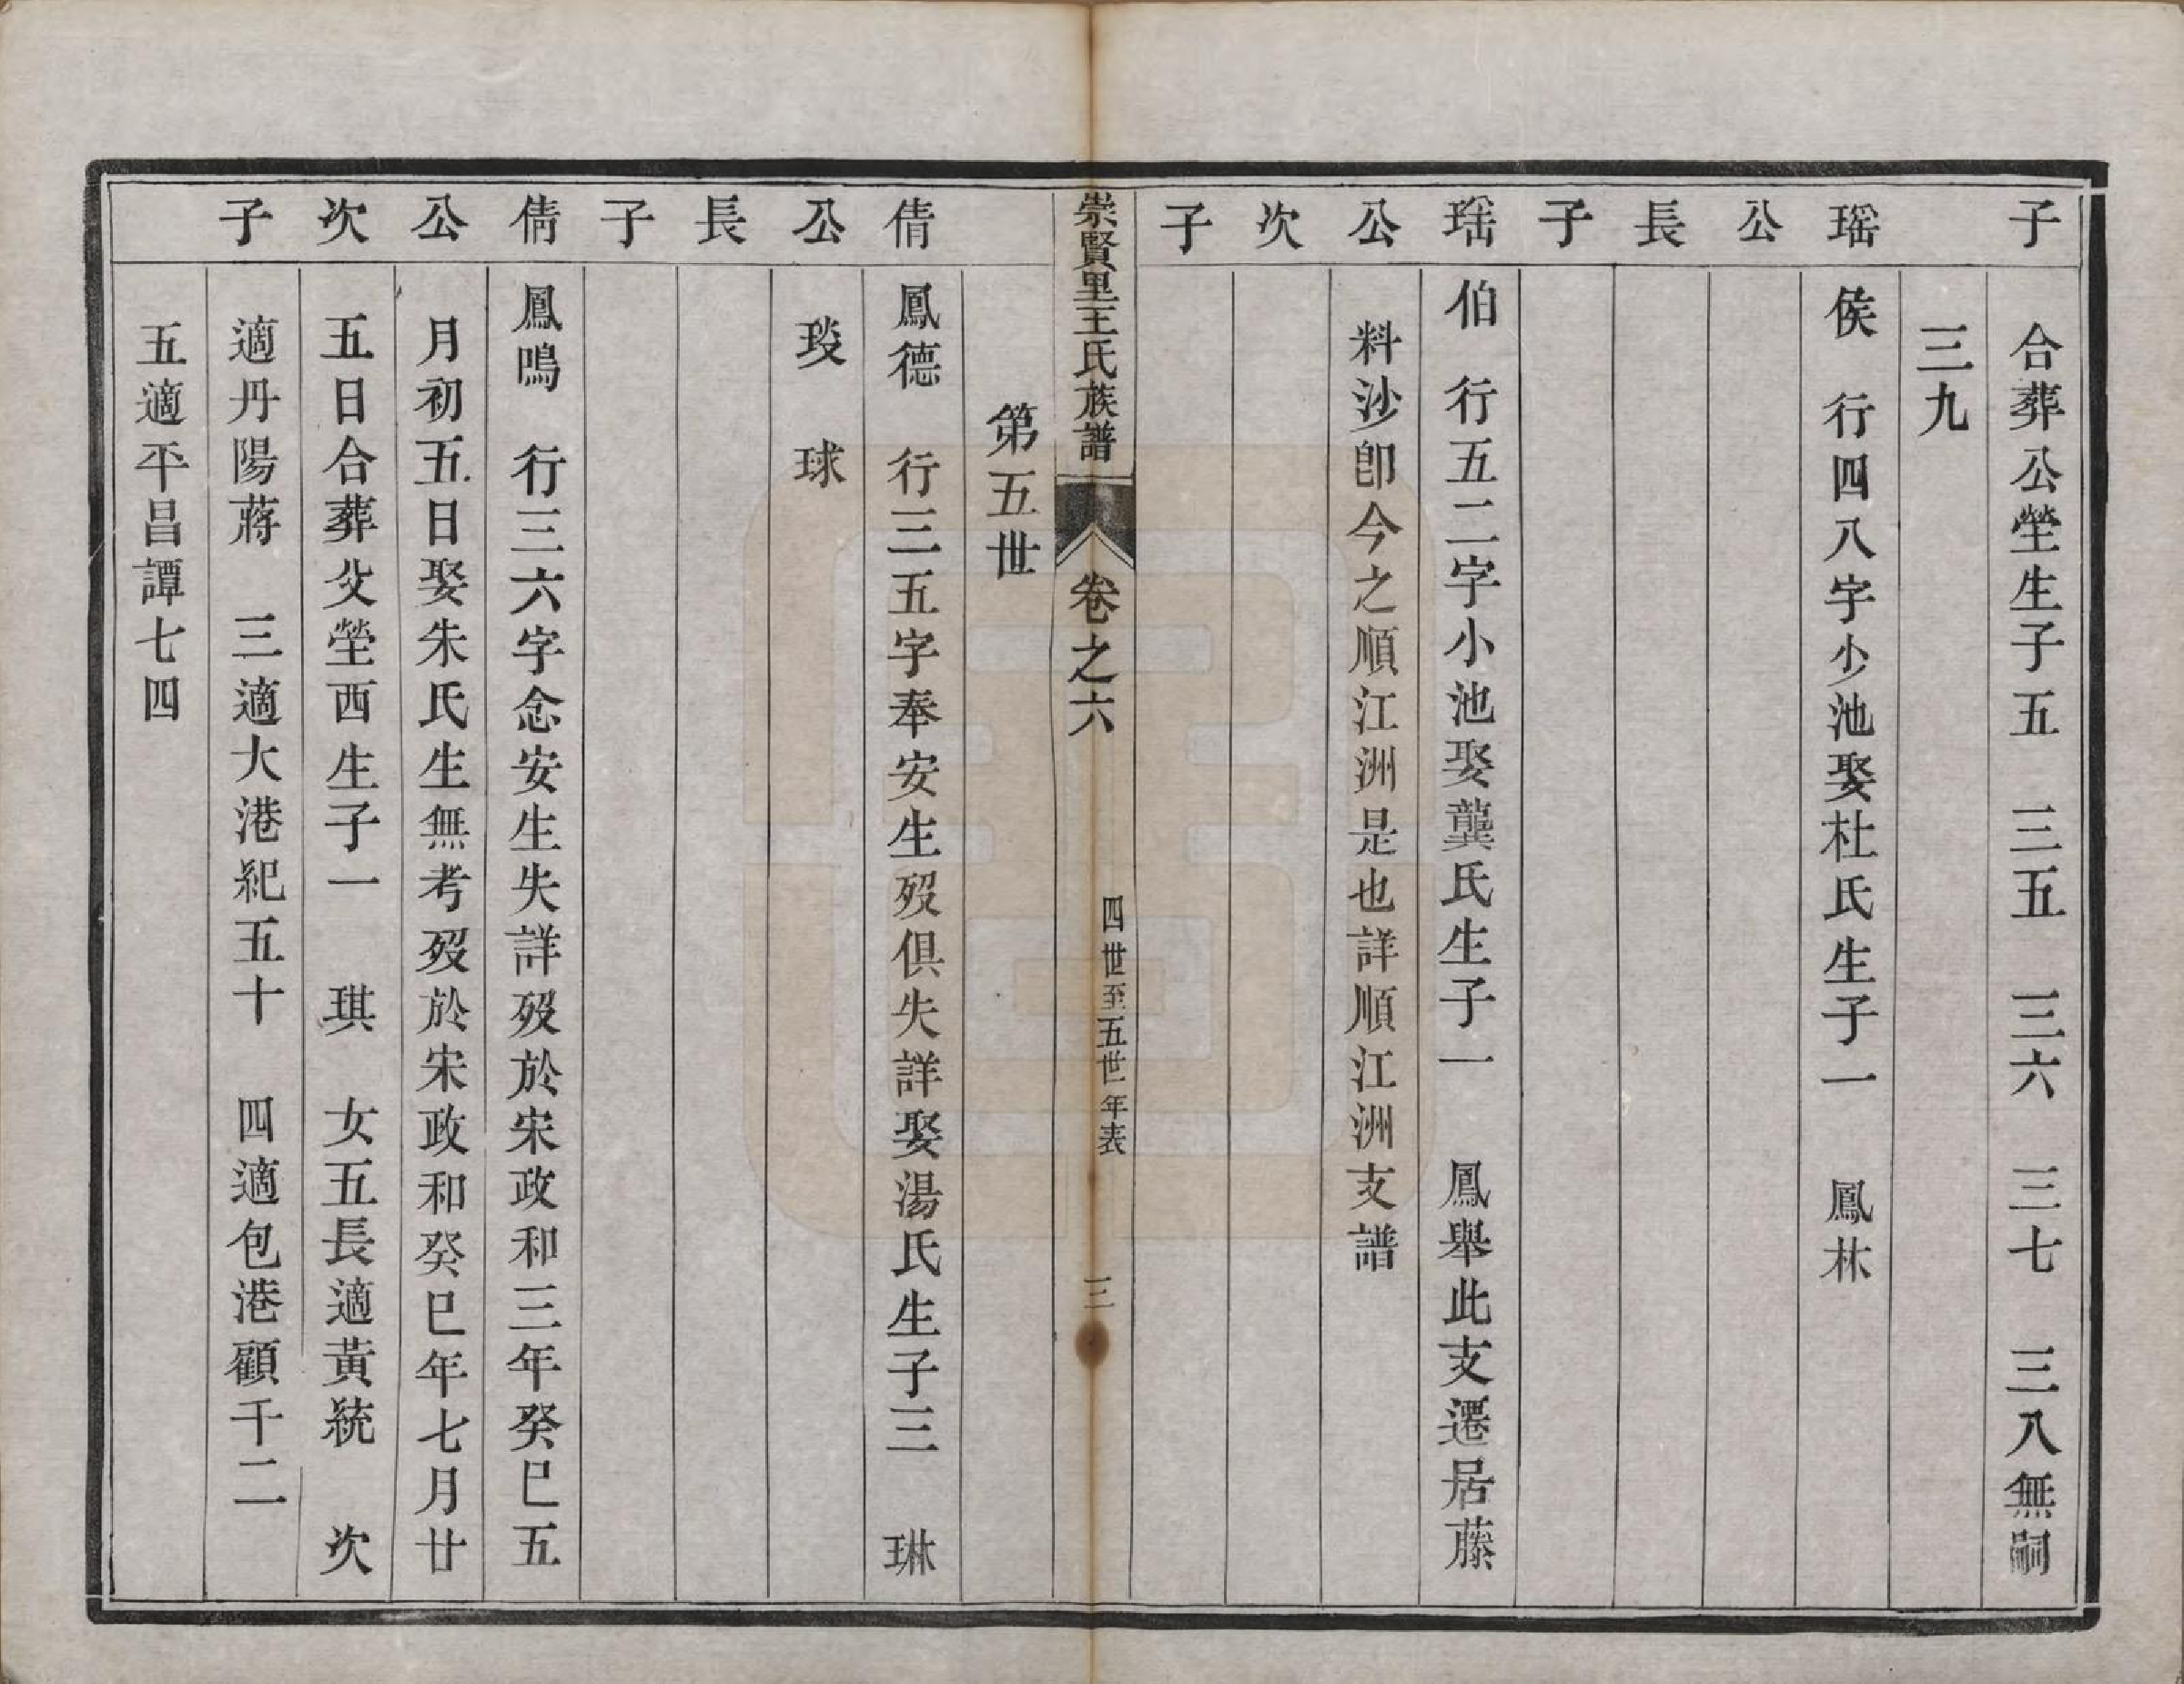 子　合葬公塋生子五　三五　三六　三七　三八無嗣
三九
瑶　侯　行四八字少池娶杜氏生子一　鳳林
公
長
子
瑶　伯　行五二字小池娶龔氏生子一　鳳舉此支遷居藤
公　料沙卽今之順江洲是也詳順江洲支譜
次
子
崇賢里王氏族譜　卷之六　四世至五世年表　三
第五世
倩　鳳德　行三五字奉安生歿俱失詳娶湯氏生子三　琳
公　琰　球
長
子
倩　鳳鳴　行三六字念安生失詳歿於宋政和三年癸巳五
公　月初五日娶朱氏生無考歿於宋政和癸巳年七月廿
次　五日合葬父塋西生子一　琪　女五長適黃統　次
子　適丹陽蔣　三適大港紀五十　四適包港顧千二
五適平昌譚七四